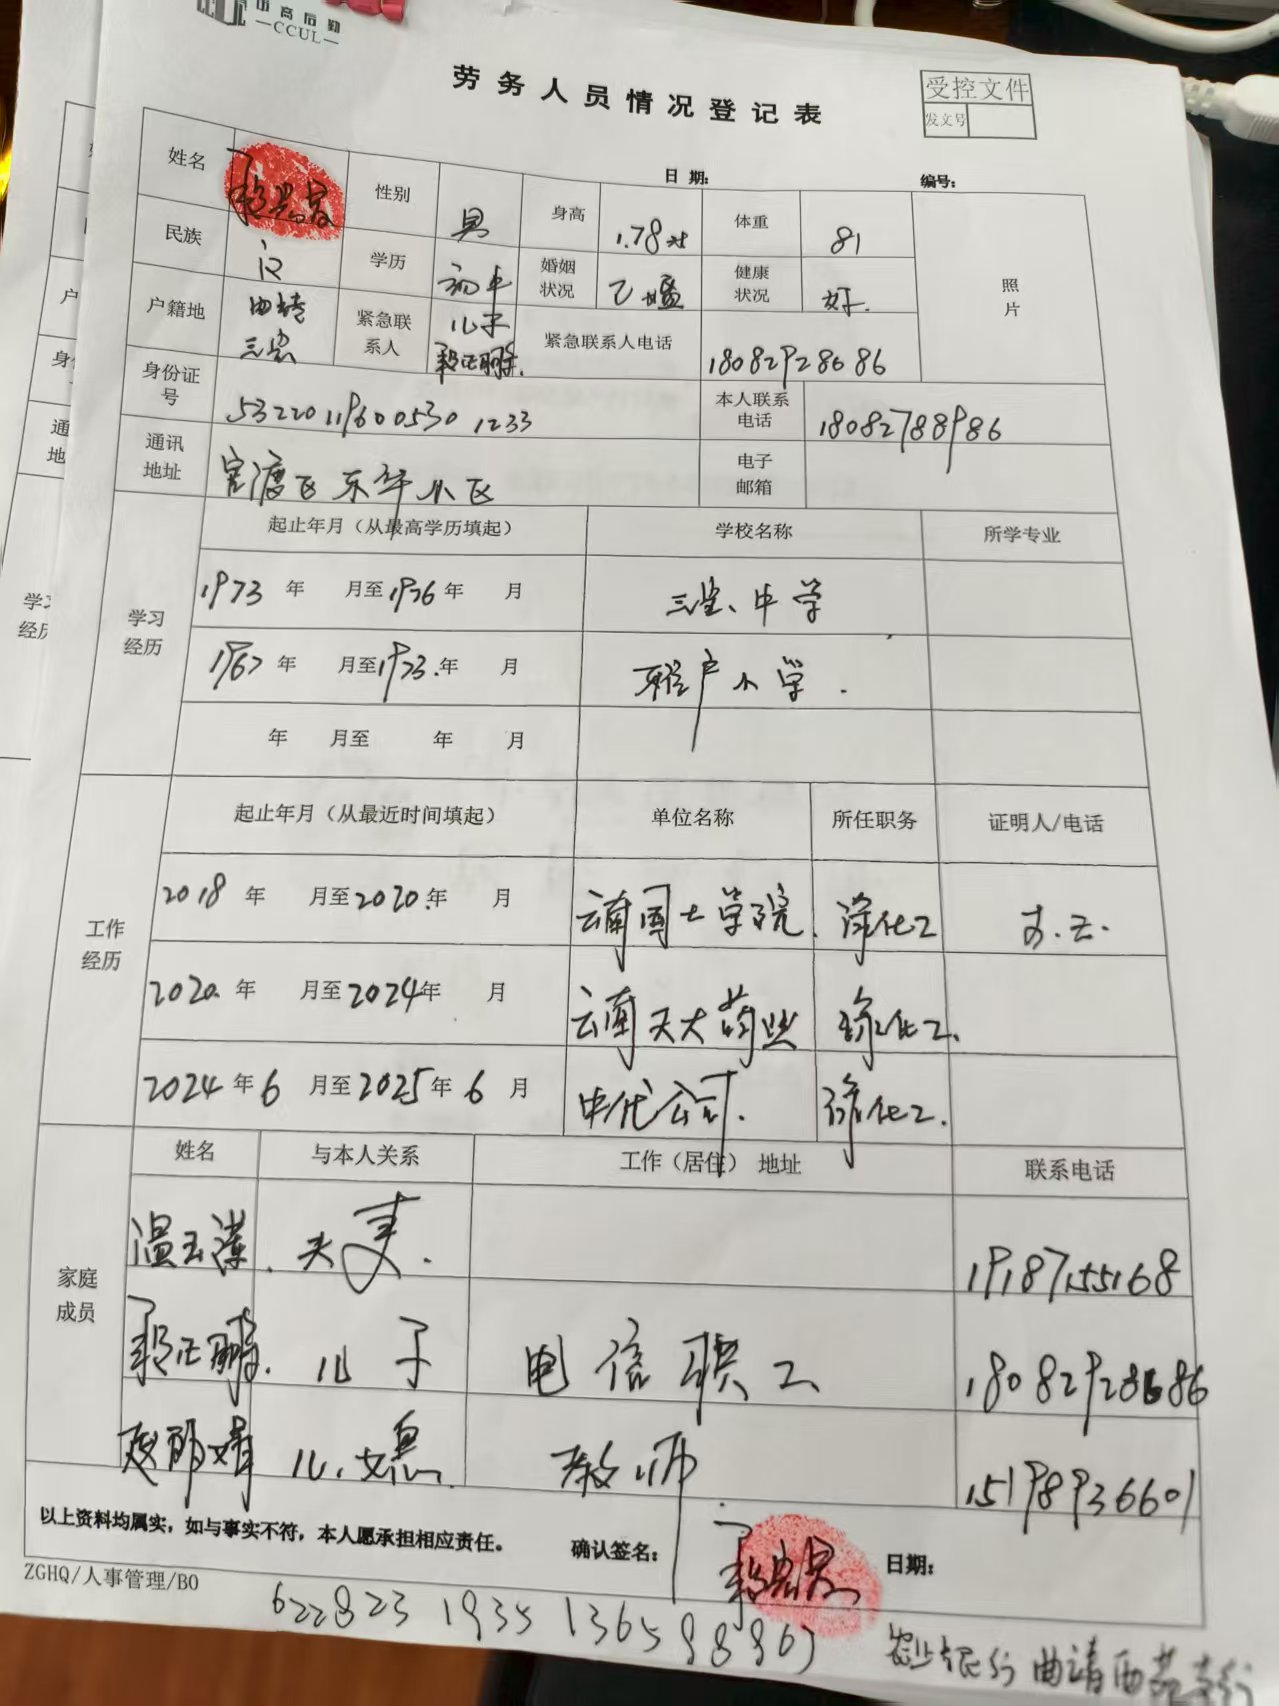 中高后勤
—CCUL—
劳务人员情况登记表
受控文件
发文号
日期: 编号:
姓名 性别 男 身高 1.78 体重 81 照片
民族 汉 学历 初中 婚姻状况 已婚 健康状况 好.
户籍地 曲靖 三宝 紧急联系人 儿子 段正鹏. 紧急联系人电话 18082928686
身份证号 532201196005301233 本人联系电话 18082788986
通讯地址 官渡区东华小区 电子邮箱
学习经历 起止年月（从最高学历填起） 学校名称 所学专业
1973 年 月至 1976 年 月 三宝中学
1967 年 月至 1973 年 月 户小学.
年 月至 年 月
工作经历 起止年月（从最近时间填起） 单位名称 所任职务 证明人/电话
2018 年 月至 2020. 年 月 云南国土学院.
2020. 年 月至 2024 年 月 云南天大药业 绿化工.
2024 年 6 月至 2025 年 6 月 公司. 绿化工.
家庭成员 姓名 与本人关系 工作（居住）地址 联系电话
温玉 夫妻. 19187155168
段正鹏. 儿子 电信职工 18082928686
儿.媳. 教师. 15198936601
以上资料均属实，如与事实不符，本人愿承担相应责任。 确认签名: 日期:
ZGHQ/人事管理/B0
622823 1935 136598867
银行曲靖西苑支行
学习经历